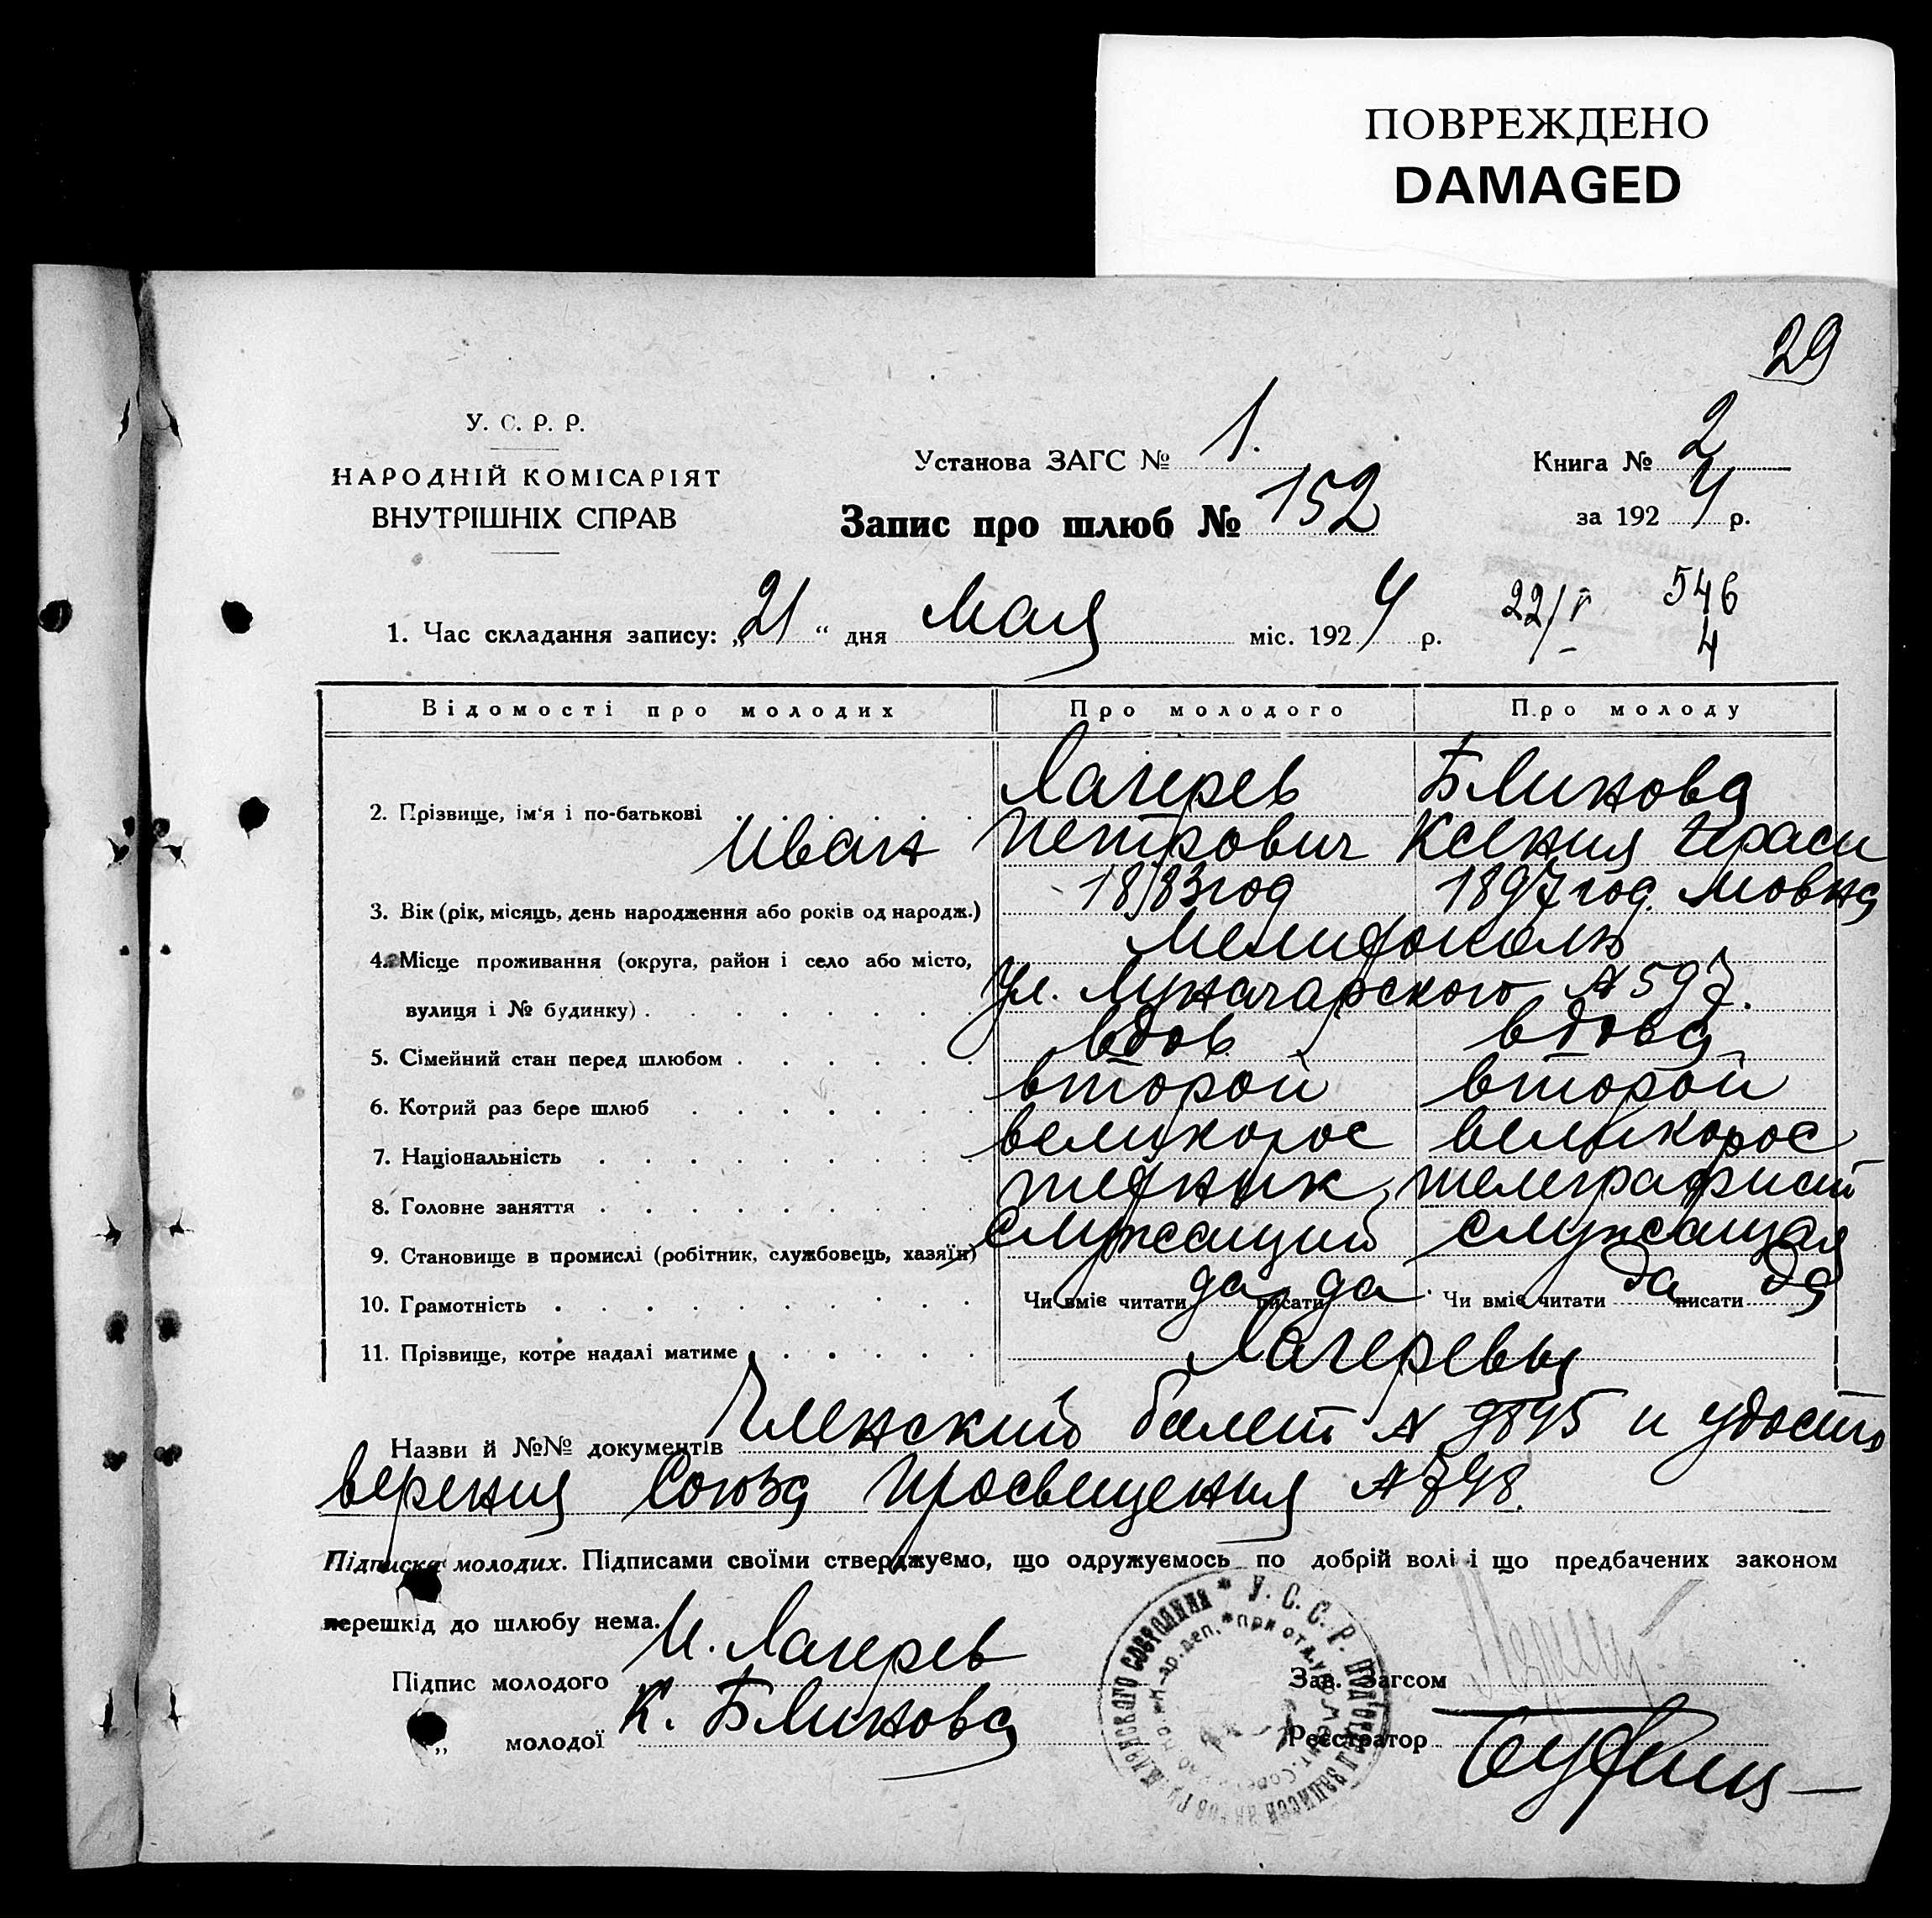 ПОВРЕЖДЕНО
DAMAGED
29
У. С. Р. Р.
НАРОДНІЙ КОМІСАРІЯТ
ВНУТРІШНІХ СПРАВ
Установа ЗАГС № 1.
Книга № 2
Запис про шлюб № 152
за 1924 р.
1. Час складання запису: „21“ дня Мая міс. 1924 р.
22/V 546
4
Відомості про молодих Про молодого Про молоду
Лагерев Блинова
2. Прізвище, ім'я і по-батькові
Иван Петрович Ксения Гераси
мовна
3. Вік (рік, місяць, день народження або років од народж.) 1883 год 1897 год.
4. Місце проживання (округа, район і село або місто, Мелитополь
вулиця і № будинку) Ул. Луначарского № 597.
5. Сімейний стан перед шлюбом вдов. вдова
6. Котрий раз бере шлюб второй второй
7. Національність великорос великорос
8. Головне заняття техник телеграфист
9. Становище в промислі (робітник, службовець, хазяїн) служащий служащая
10. Грамотність Чи вміє читати да писати да Чи вміє читати да писати да
11. Прізвище, котре надалі матиме Лагеревы
Назви й №№ документів Членский билет № и удосто
верения Союза Просвещения № 748.
Підписка молодих. Підписами своїми стверджуємо, що одружуємось по добрій волі і що предбачених законом
перешкід до шлюбу нема.
Підпис молодого И. Лагерев
„ молодої К. Блинова
Зав. Загсом
Реєстратор
У. С. С. Р. ПОДОТДЕЛ ЗАПИСИ АКТОВ ГРАЖДАНСКОГО СОСТОЯНИЯ